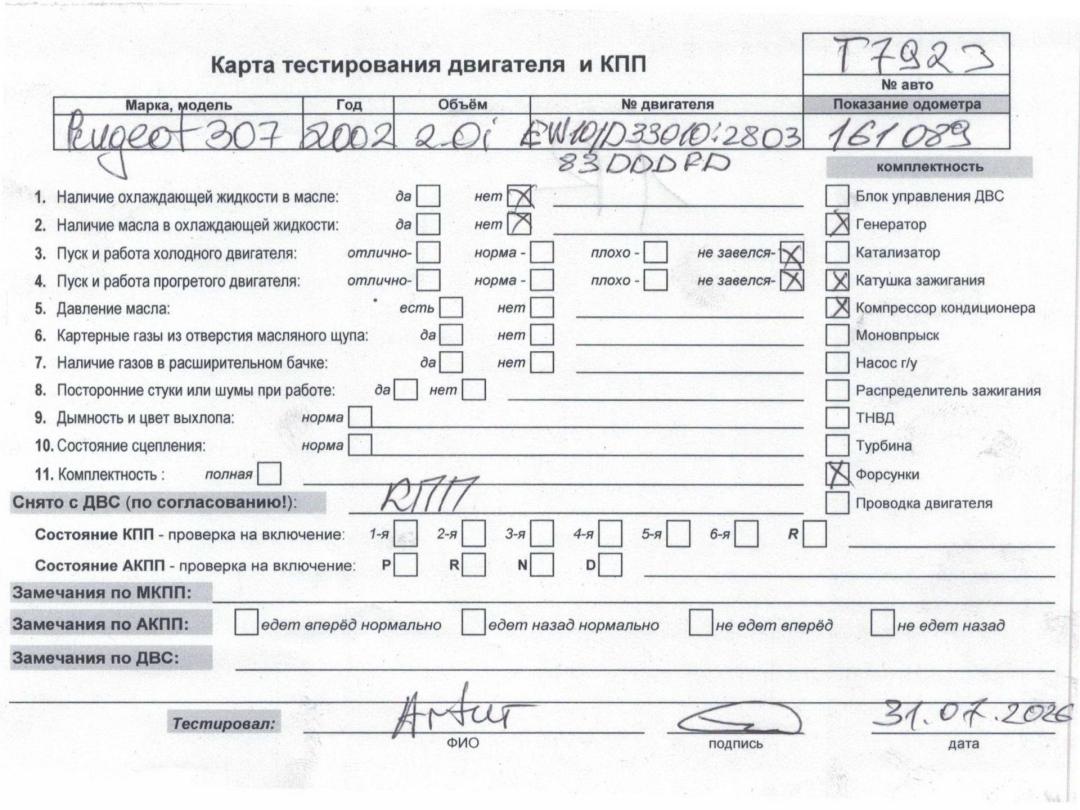 Т7923
Карта тестирования двигателя и КПП
№ авто
Марка, модель Год Объём № двигателя Показание одометра
Peugeot 307 2002 2.0i 161089
83DDDFD
комплектность
1. Наличие охлаждающей жидкости в масле: да нет Блок управления ДВС
2. Наличие масла в охлаждающей жидкости: да нет Генератор
3. Пуск и работа холодного двигателя: отлично- норма - плохо - не завелся- Катализатор
4. Пуск и работа прогретого двигателя: отлично- норма - плохо - не завелся- Катушка зажигания
5. Давление масла: есть нет Компрессор кондиционера
6. Картерные газы из отверстия масляного щупа: да нет Моновпрыск
7. Наличие газов в расширительном бачке: да нет Насос г/у
8. Посторонние стуки или шумы при работе: да нет Распределитель зажигания
9. Дымность и цвет выхлопа: норма ТНВД
10. Состояние сцепления: норма Турбина
11. Комплектность : полная Форсунки
Снято с ДВС (по согласованию!): КПП Проводка двигателя
Состояние КПП - проверка на включение: 1-я 2-я 3-я 4-я 5-я 6-я R
Состояние АКПП - проверка на включение: P R N D
Замечания по МКПП:
Замечания по АКПП: едет вперёд нормально едет назад нормально не едет вперёд не едет назад
Замечания по ДВС:
Тестировал: Artur 31.07.2026
ФИО подпись дата